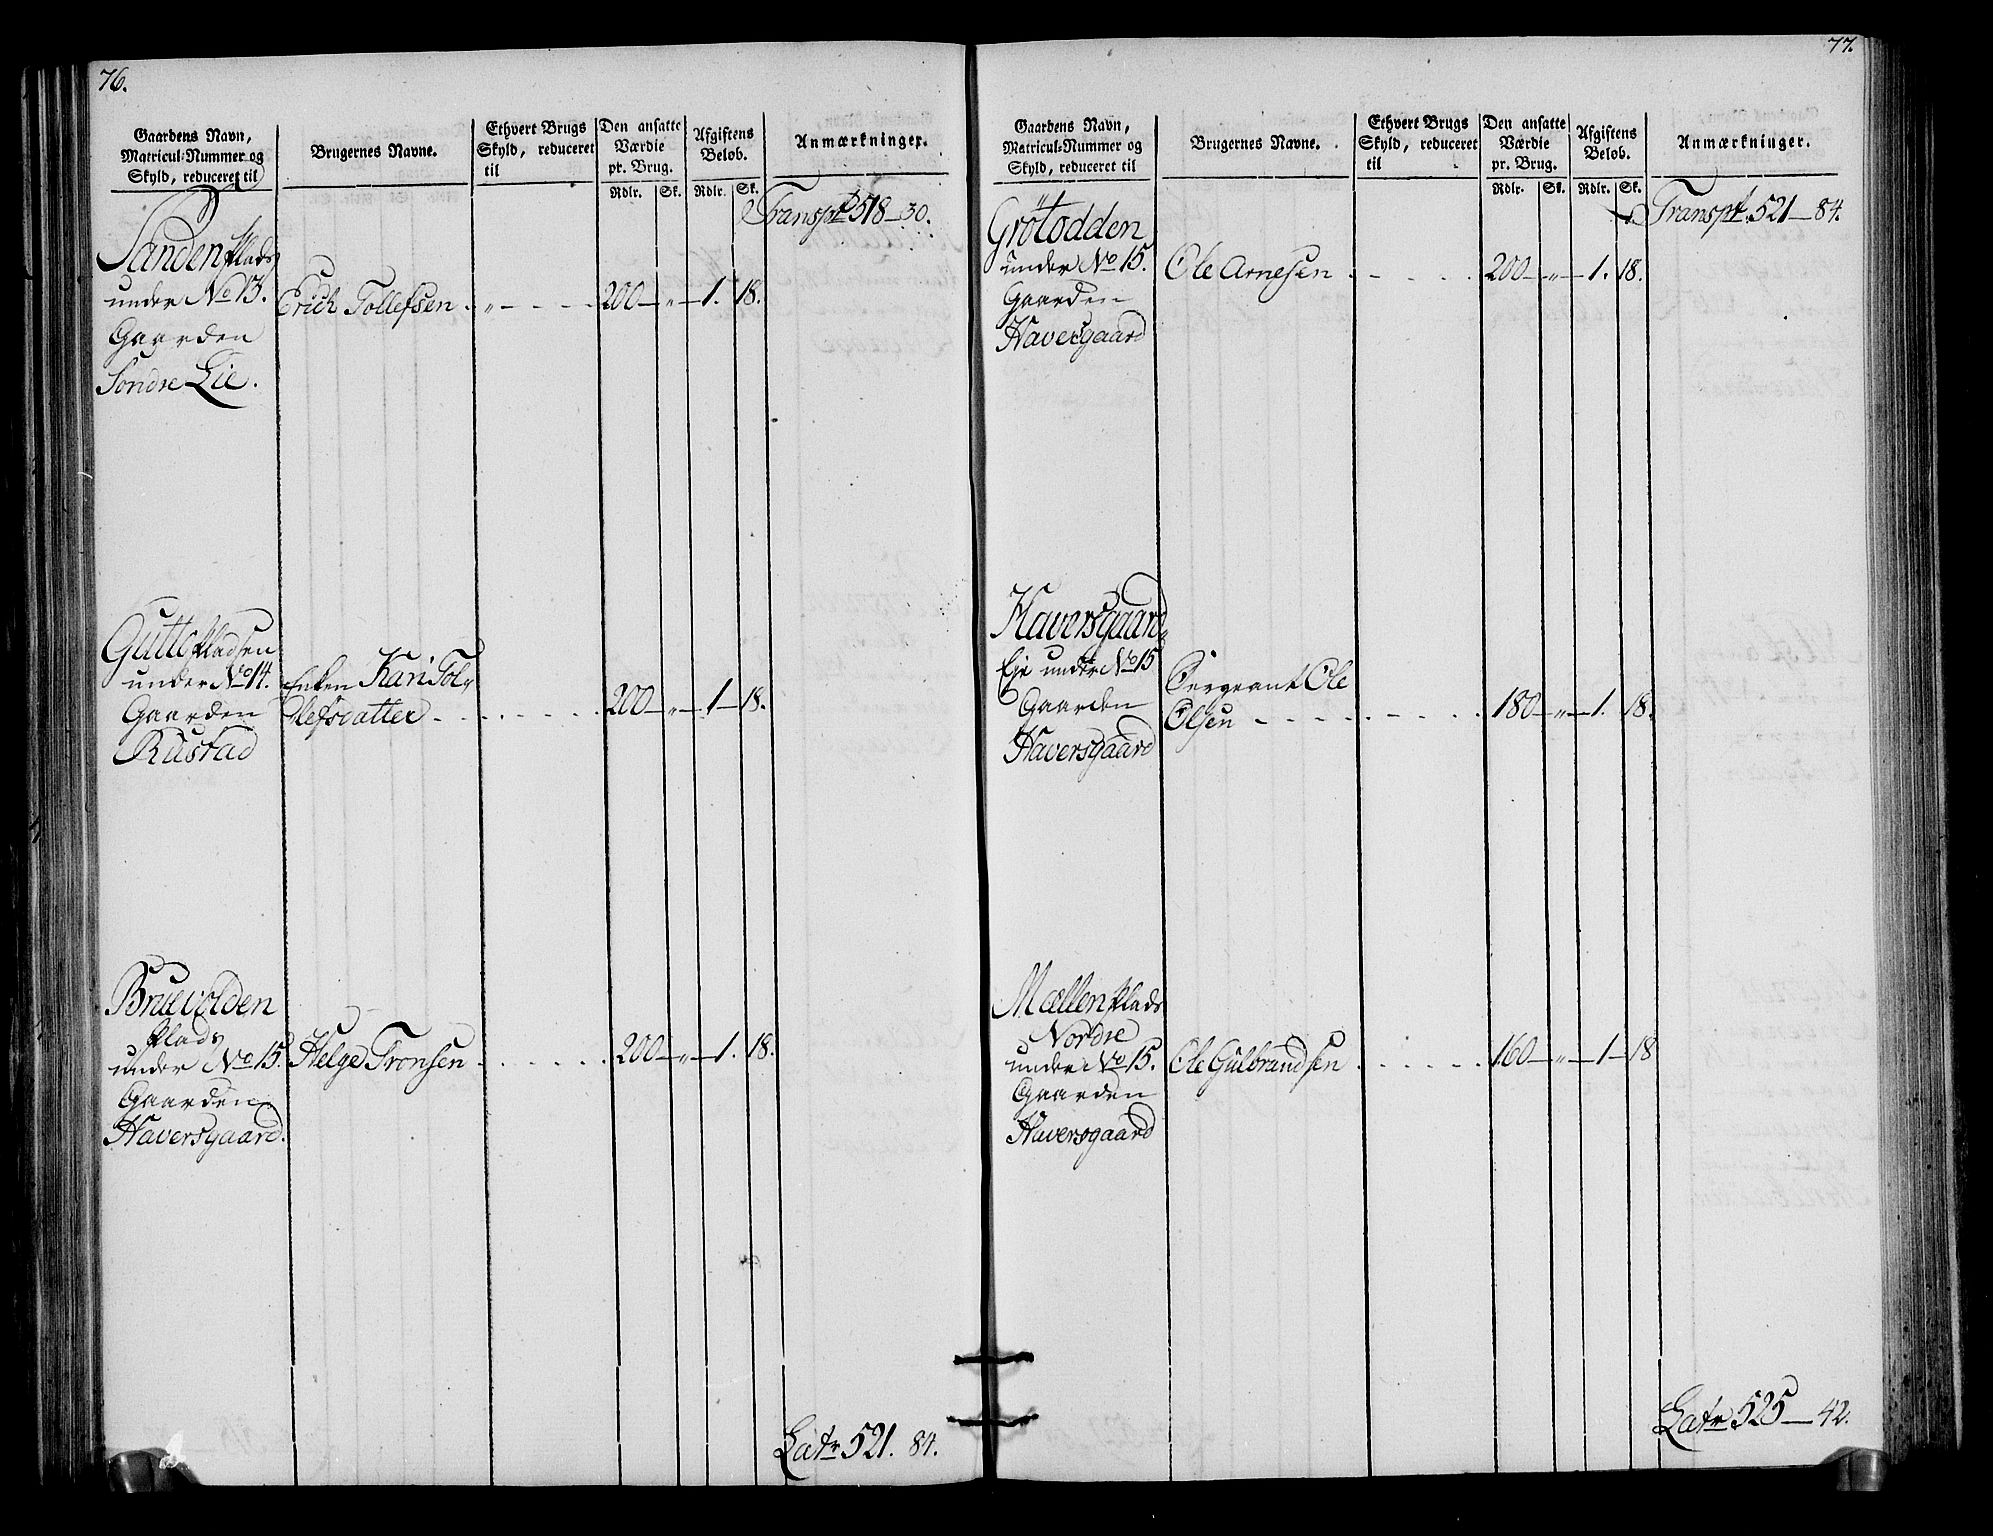 76.
Gaardens Navn,
Matricul-Nummer og
Skyld, reduceret til
Brugernes Navne.
Ethvert Brugs
Skyld, reduceret
til
Den ansatte
Værdie
pr. Brug.
Rdlr. Sk.
Afgiftens
Beløb.
Rdlr. Sk.
Anmærkninger.
Transpt 518 — 30.
Sanden Plads
under No 13.
Gaarden
Søndre Lie.
Erich Tollefsen . „ — 200 — „ — 1. 18.
Gutte Pladsen
under No 14.
Gaarden
Rustad
Enken Kari Tol-
lefsdatter 200 — „ — 1 — 18.
Bruevolden
Plads
under No 15.
Gaarden
Haversgaard.
Helge Tronsen 200 — „ — 1. 18.
Latr 521. 84.
77.
Gaardens Navn,
Matricul-Nummer og
Skyld, reduceret til
Brugernes Navne.
Ethvert Brugs
Skyld, reduceret
til
Den ansatte
Værdie
pr. Brug.
Rdlr. Sk.
Afgiftens
Beløb.
Rdlr. Sk.
Anmærkninger.
Transpt. 521 — 84.
Grötodden
under No 15.
Gaarden
Haversgaard
Ole Arnesen 200 — „ — 1. 18.
Haversgaard,
Eje under No 15
Gaarden
Haversgaard
Sergeant Ole
Olsen 180 — „ — 1. 18.
Mællen Plads
Nordre
under No 15.
Gaarden
Haversgaard
Ole Gülbrandsen 160 — „ — 1 — 18
Latr 525 — 42.